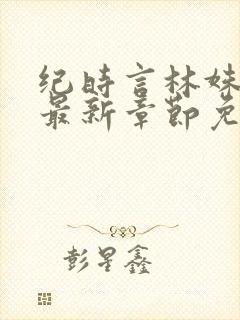 纪时言林妹
最新章节免
彭星鑫